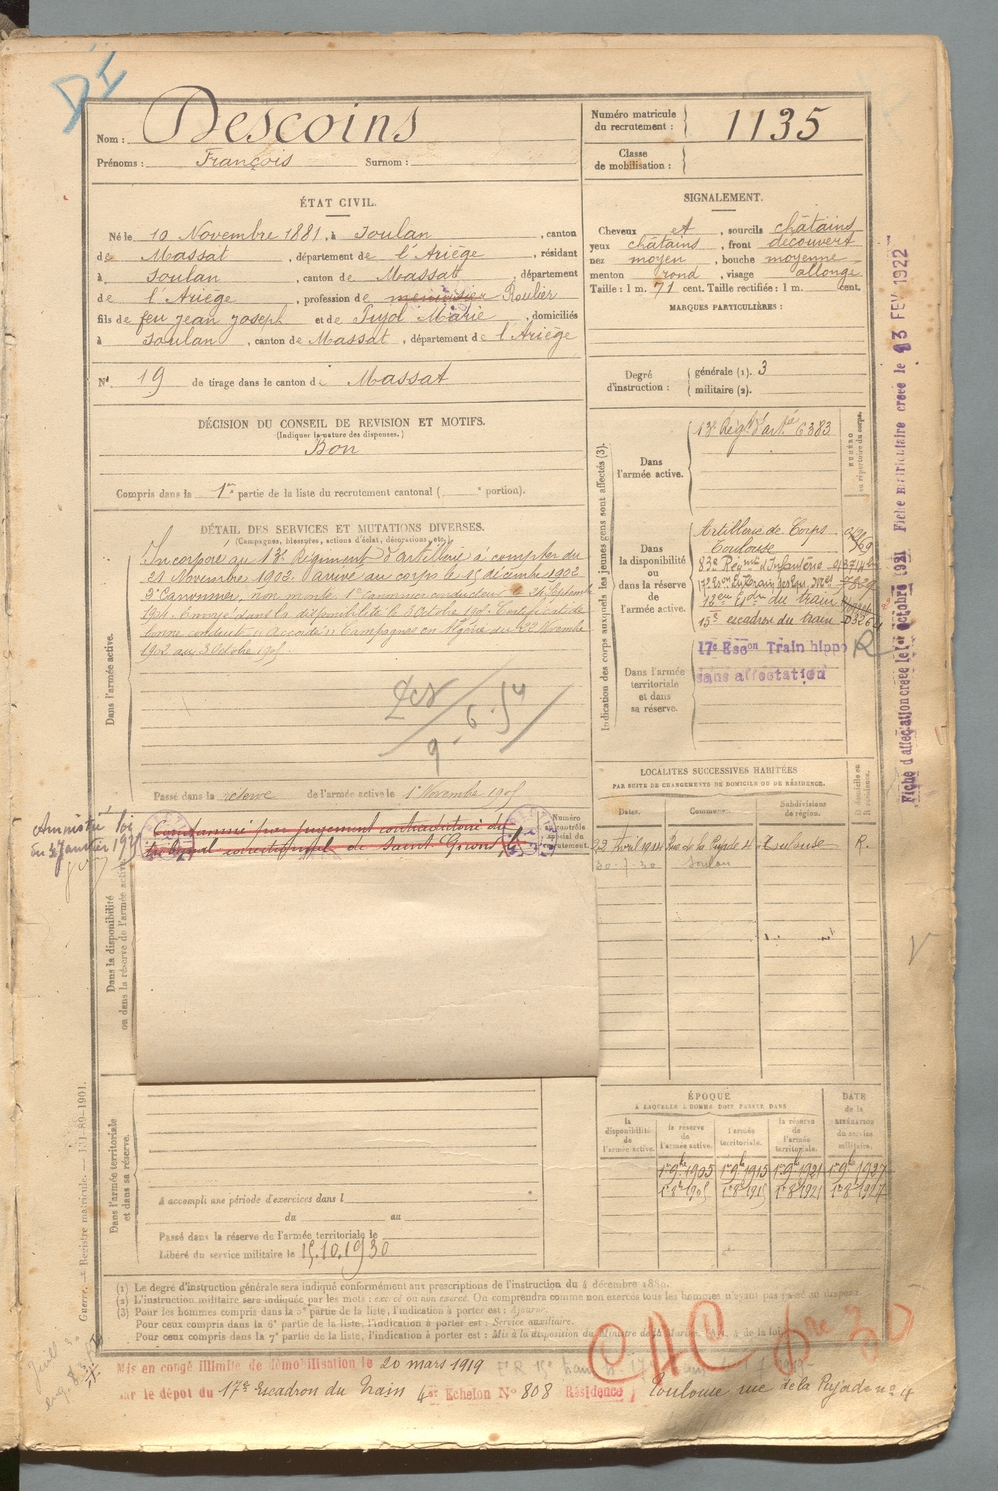 DI
Nom : Descoins
Prénoms : François Surnom :
Numéro matricule du recrutement : 1135
Classe de mobilisation :
ÉTAT CIVIL.
Né le 10 Novembre 1881, à Soulan, canton
de Massat, département de l'Ariège, résidant
à Soulan, canton de Massat, département
de l'Ariège, profession de Roulier
fils de feu jean joseph et de Pujol Marie, domiciliés
à Soulan, canton de Massat, département de l'Ariège
N° 19 de tirage dans le canton de Massat
SIGNALEMENT.
Cheveux et, sourcils châtains
yeux châtains, front découvert
nez moyen, bouche moyenne
menton rond, visage allongé
Taille : 1 m. 71 cent. Taille rectifiée : 1 m. cent.
MARQUES PARTICULIÈRES :
Degré d'instruction : générale (1). 3
militaire (2).
DÉCISION DU CONSEIL DE REVISION ET MOTIFS.
(Indiquer la nature des dispenses.)
Bon
Compris dans la 1re partie de la liste du recrutement cantonal ( e portion).
DÉTAIL DES SERVICES ET MUTATIONS DIVERSES.
(Campagnes, blessures, actions d'éclat, décorations, etc.)
Dans l'armée active.
Incorporé au 13e Régiment d'artillerie à compter du
21 Novembre 1902. arrivé au corps le
2e Canonnier, 1er Canonnier conducteur le 24 Septembre
1904. Envoyé dans la disponibilité le 3 Octobre 1905. Certificat de
bonne conduite "Accordé" Campagnes en Algérie du 22 Novembre
1902 au 3 Octobre 1905
9. 6. 54
Passé dans la réserve de l'armée active le 1er Novembre 1905
Amnistié loi
du 3 Janvier 1925
Condamné par jugement contradictoire du
tribunal correctionnel de Saint Girons
Numéro au contrôle spécial du recrutement.
Dans la disponibilité ou dans la réserve de l'armée active
Indication des corps auxquels les jeunes gens sont affectés (3).
NUMÉRO au répertoire du corps.
Dans l'armée active.
13e Régt d'artie 6383
Dans la disponibilité ou dans la réserve de l'armée active.
Artillerie de Corps
Toulouse
83e Régmt d'Infanterie
du train
15e escadron du train
17e Escon Train hippo
sans affectation
R
Dans l'armée territoriale et dans sa réserve.
LOCALITÉS SUCCESSIVES HABITÉES
PAR SUITE DE CHANGEMENTS DE DOMICILE OU DE RÉSIDENCE.
Dates. Communes. Subdivisions de région. D domicile ou R résidence.
22 Avril 1914 Rue de la Pujade 4 Toulouse R.
30-7-30 Soulan
ÉPOQUE
À LAQUELLE L'HOMME DOIT PASSER DANS
la disponibilité de l'armée active. la réserve de l'armée active. l'armée territoriale. la réserve de l'armée territoriale. DATE de la LIBÉRATION du service militaire.
1er 9bre 1905 1er 9bre 1915 1er 9bre 1921 1er 9bre 1927
1er 8bre 1905 1er 8bre 1915 1er 8bre 1921 1er 8bre 1927
Dans l'armée territoriale et dans sa réserve.
à accompli une période d'exercices dans l
du au
Passé dans la réserve de l'armée territoriale le
Libéré du service militaire le 15.10.1930
Guerre. — Registre matricule. — 131-80-1901.
(1) Le degré d'instruction générale sera indiqué conformément aux prescriptions de l'instruction du 4 décembre 1889.
(2) L'instruction militaire sera indiquée par les mots : exercé ou non exercé. On comprendra comme non exercés tous les hommes n'ayant pas passé au disposit.
(3) Pour les hommes compris dans la 5e partie de la liste, l'indication à porter est : Ajourné.
Pour ceux compris dans la 6e partie de la liste, l'indication à porter est : Service auxiliaire.
Pour ceux compris dans la 7e partie de la liste, l'indication à porter est : Mis à la disposition du Ministre de la Marine, de la loi
CAC
Mis en congé illimité de démobilisation le 20 mars 1919
par le dépôt du 17e Escadron du Train 4er Echelon N° 808 Résidence Toulouse rue de la Pujade n° 4
Fiche d'affectation créée le 1er octobre 1921 Fiche matriculaire créée le 13 FEV 1922